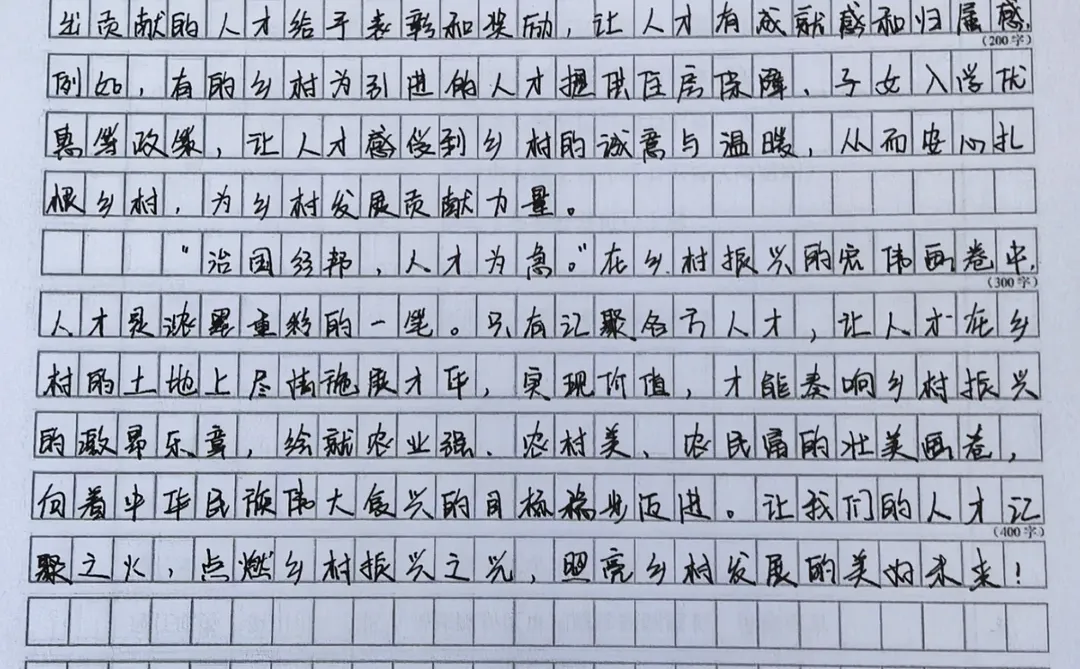 出贡献的人才给予表彰和奖励,让人才有成就感和归属感,
(200字)
例如,有的乡村为引进的人才提供住房保障、子女入学优
惠等政策,让人才感受到乡村的诚意与温暖,从而安心扎
根乡村,为乡村发展贡献力量。
“治国经邦,人才为急。”在乡村振兴的宏伟画卷中,
(300字)
人才是浓墨重彩的一笔。只有汇聚各方人才,让人才在乡
村的土地上尽情施展才华,实现价值,才能奏响乡村振兴
的激昂乐章,绘就农业强、农村美、农民富的壮美画卷,
向着中华民族伟大复兴的目标稳步迈进。让我们的人才汇
(400字)
聚之火,点燃乡村振兴之光,照亮乡村发展的美好未来!